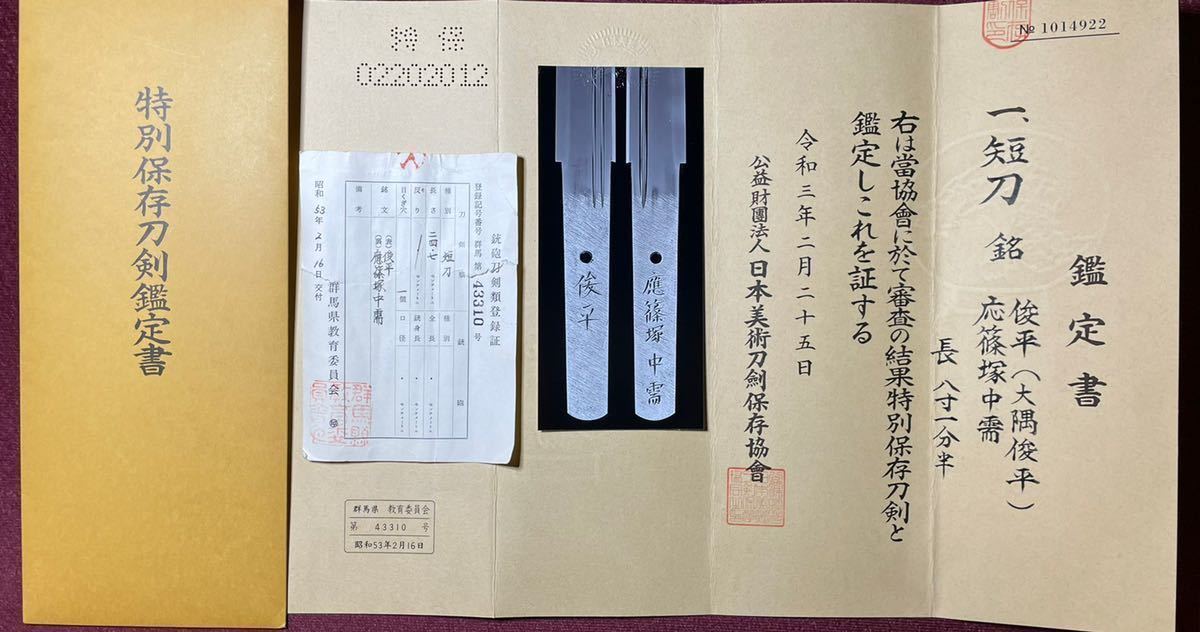 特別保存刀剣鑑定書
No 1014922
鑑定書
一、短刀 銘 俊平(大隅俊平)
応篠塚中需
長 八寸一分半
右は當協會に於て審査の結果特別保存刀剣と
鑑定しこれを証する
令和三年二月二十五日
公益財團法人 日本美術刀劍保存協會
應篠塚中需
俊平
特保
02202012
銃砲刀剣類登録証
登録記号番号 群馬 第 43310 号
刀剣類
銃砲
種別 短刀
種別
長さ 二四・七 センチメートル
全長 ・ センチメートル
反り センチメートル
銃身長 ・ センチメートル
目くぎ穴 一個
口径 ・ センチメートル
銘文 (表)俊平
(裏)應篠塚中需
備考
昭和53年2月16日交付
群馬県教育委員会
群馬県 教育委員会
第 43310 号
昭和53年2月16日